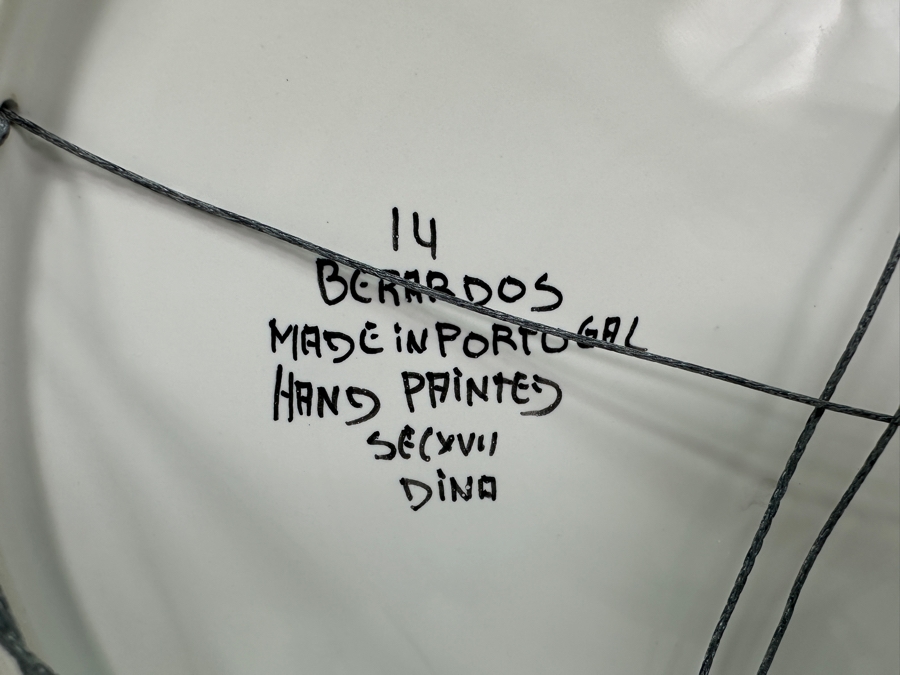 14
BERARDOS
MADE IN PORTUGAL
HAND PAINTED
SEC XVII
DINA